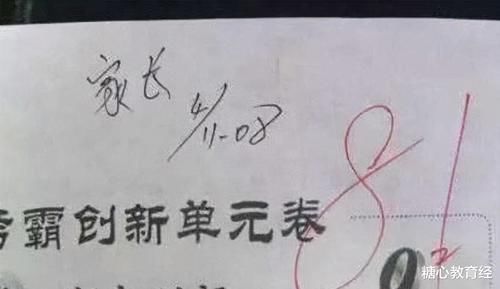 家长
4/11-08
81
霸创新单元卷
糖心教育经